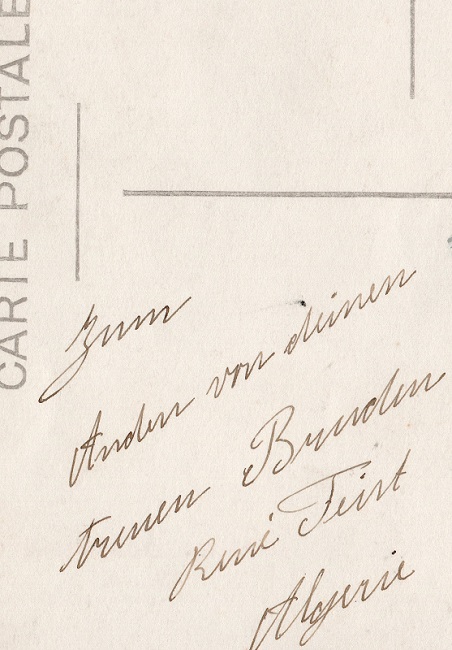 CARTE POSTALE
Zum
Anden von deinen
treuen Brunden
René Feist
Algerie